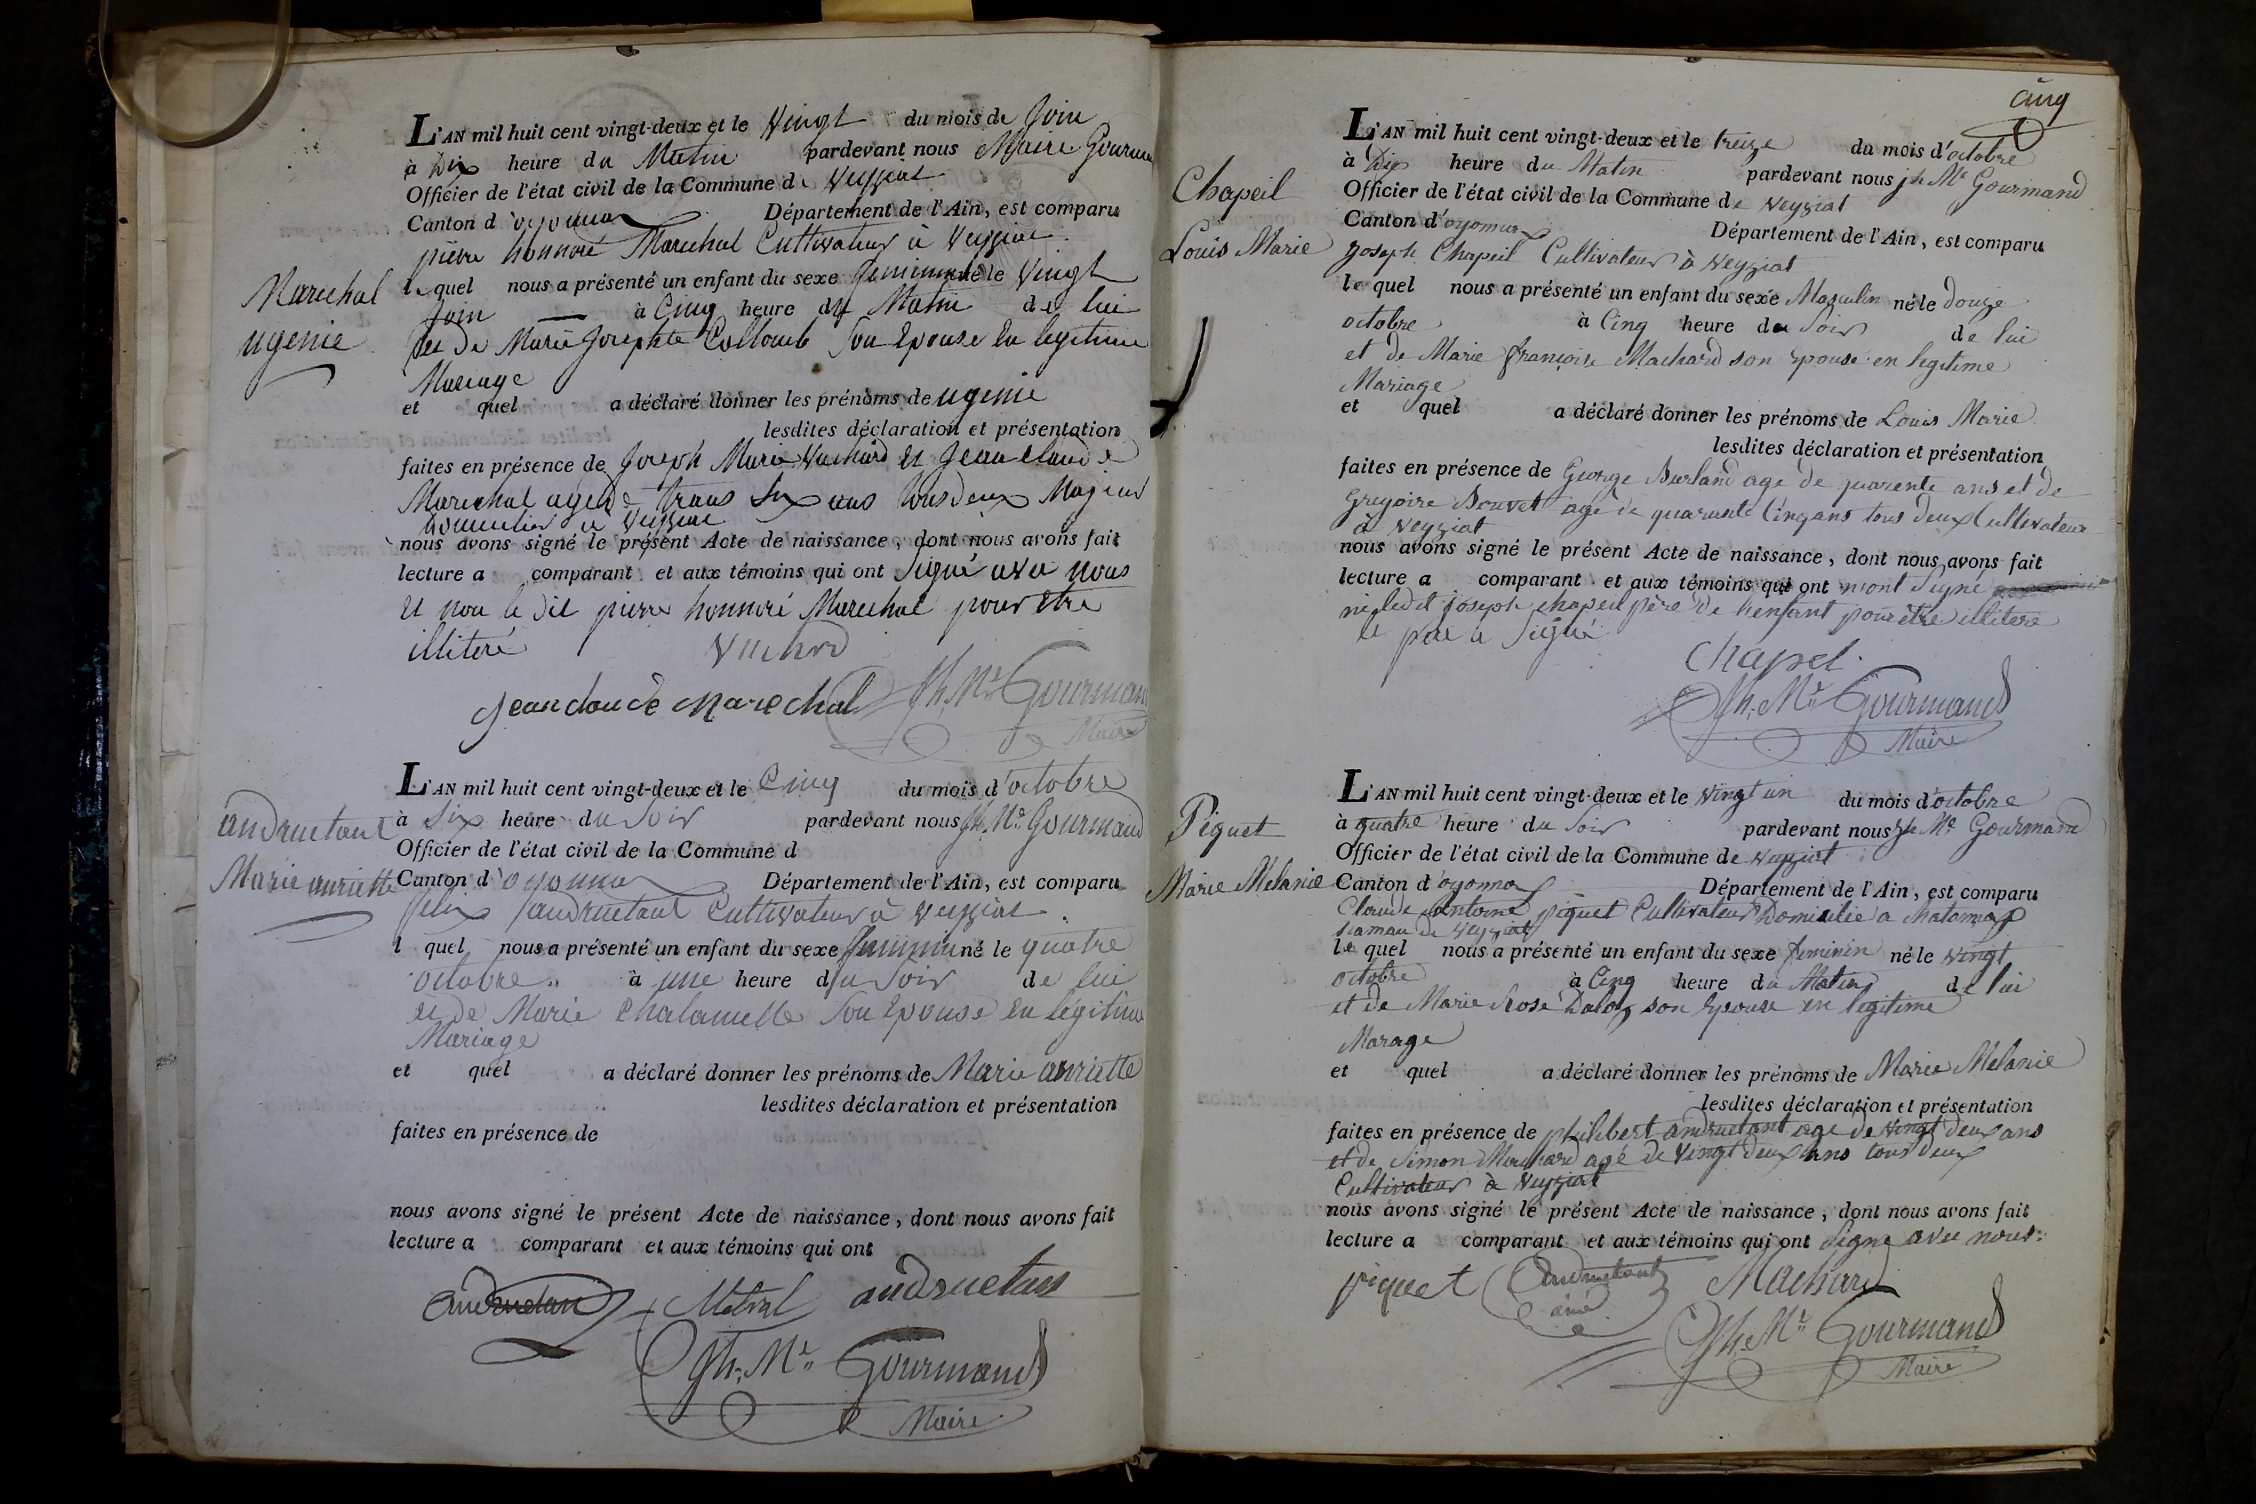 L'AN mil huit cent vingt-deux et le Vingt du mois de Join
à Dix heure du Matin pardevant nous Maire Gourman
Officier de l'état civil de la Commune de Veyziat
Canton d'oyonnax Département de l'Ain, est comparu
pierre honnoré Marechal Cultivateur à Veyziat
Marechal
ugenie
le quel nous a présenté un enfant du sexe feminin né le Vingt
Join à Cinq heure du Matin de lui
et de Marie Josephte Collomb Son Epouse En legitime
Mariage
et quel a déclaré donner les prénoms de ugenie
lesdites déclaration et présentation
faites en présence de Joseph Marie Vuchard et Jean Claude
Marechal agé de trans Six ans tous deux Majeur
Domicilier a Veyziat
nous avons signé le présent Acte de naissance, dont nous avons fait
lecture a comparant et aux témoins qui ont Signé avec nous
et non le dit pierre honnoré Marechal pour Etre
illiteré
Vuchard
Jean claude Marechal Jh. Me. Gourmand
Maire
L'AN mil huit cent vingt-deux et le Cinq du mois d'octobre
andruetant
Marie anriette
à Six heure du Soir pardevant nous Jh. Me. Gourmand
Officier de l'état civil de la Commune d
Canton d'oyonnax Département de l'Ain, est comparu
felix andruetant Cultivateur à Veyziat
l quel nous a présenté un enfant du sexe feminin né le quatre
octobre à une heure du Soir de lui
et de Marie Chalamelle Son Epouse En légitime
Mariage
et quel a déclaré donner les prénoms de Marie anriette
lesdites déclaration et présentation
faites en présence de
nous avons signé le présent Acte de naissance, dont nous avons fait
lecture a comparant et aux témoins qui ont
andruetan Metral andruetan
Jh. Me. Gourmand
Maire
cinq
L'AN mil huit cent vingt-deux et le treize du mois d'octobre
à Dix heure du Matin pardevant nous jh Me Gourmand
Chapeil
Louis Marie
Officier de l'état civil de la Commune de Veyziat
Canton d'oyonnax Département de l'Ain, est comparu
Joseph Chapeil Cultivateur à Veyziat
le quel nous a présenté un enfant du sexe Masculin né le douze
octobre à Cinq heure du Soir de lui
et de Marie françoise Machard son Epouse en legitime
Mariage
et quel a déclaré donner les prénoms de Louis Marie
lesdites déclaration et présentation
faites en présence de George Burland age de quarente ans et de
Gregoire Bouvet age de quarante Cinq ans tous deux Cultivateur
a Veyziat
nous avons signé le présent Acte de naissance, dont nous avons fait
lecture a comparant et aux témoins qui ont n'ont Signé
ni ledit joseph chapeil père de lenfant pour être illiteré
le père a Signé
Chapel
Jh. Me. Gourmand
Maire
L'AN mil huit cent vingt-deux et le Vingt un du mois d'octobre
Piquet
Marie Melanie
à quatre heure du Soir pardevant nous Jh Me Gourmand
Officier de l'état civil de la Commune de Veyziat
Canton d'oyonnax Département de l'Ain, est comparu
Claude Antoine piquet Cultivateur Domicilié a chatonnax
hamau de Veyziat
le quel nous a présenté un enfant du sexe feminin né le vingt
octobre à Cinq heure du Matin de lui
et de Marie Rose Daloz son Epouse en legitime
Marage
et quel a déclaré donner les prénoms de Marie Melanie
lesdites déclaration et présentation
faites en présence de philibert andruetant age de Vingt deux ans
et de Simon Machard agé de Vingt deux ans tous deux
Cultivateur à Veyziat
nous avons signé le présent Acte de naissance, dont nous avons fait
lecture a comparant et aux témoins qui ont Signe avec nous
piquet andruetant Machard
ainé
Jh. Me. Gourmand
Maire